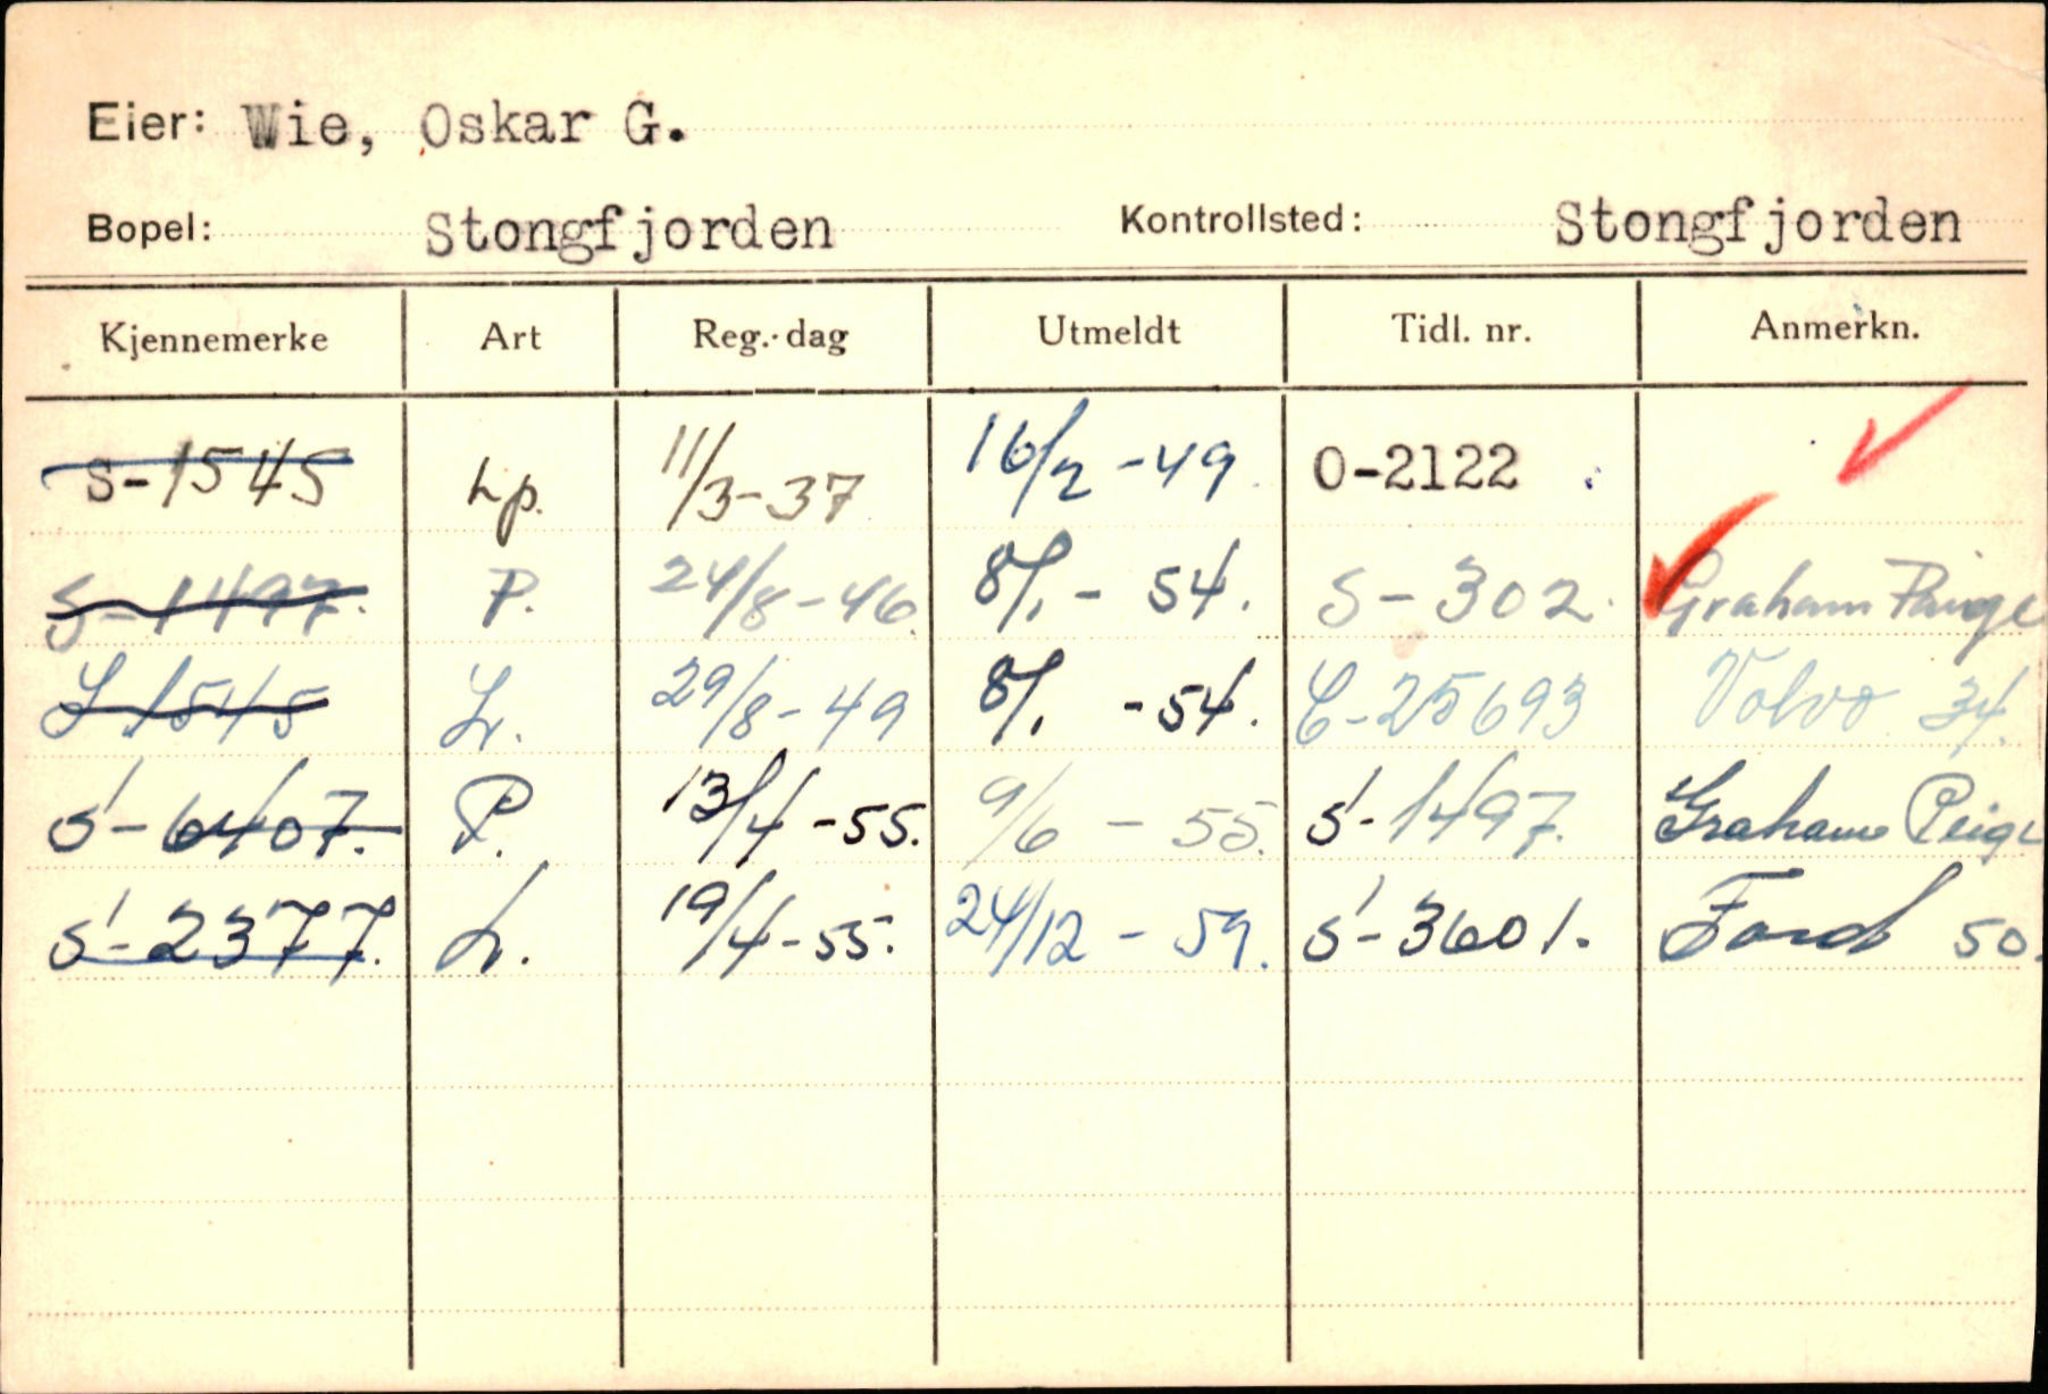 Eier: Wie, Oskar G.
Bopel: Stongfjorden Kontrollsted: Stongfjorden
Kjennemerke Art Reg.-dag Utmeldt Tidl. nr. Anmerkn.
S-1545 Lp. 11/3-37 16/2-49 O-2122
S-1497. P. 24/8-46. 8/1-54. S-302. Graham Paige
S-1545 L. 29/8-49 8/1-54. C-25693 Volvo 34.
S-6407. P. 13/4-55. 9/6-55. S-1497. Graham Peige
S-2377. L. 19/4-55. 24/12-59. S-3601. Ford 50.